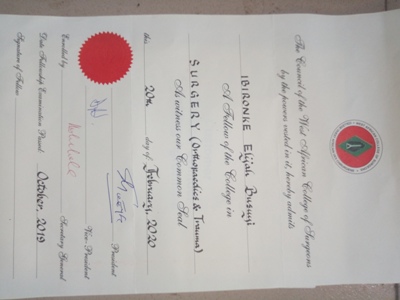 The Council of the West African College of Surgeons
by the powers vested in it, hereby admits
IBIRONKE Elijah Busuyi
A Fellow of the College in
SURGERY (Orthopaedics & Trauma)
As witness our Common Seal
this 20th day of February, 2020
President
Vice-President
Secretary General
Enrolled by
Date Fellowship Examination Passed October, 2019
Signature of Fellow